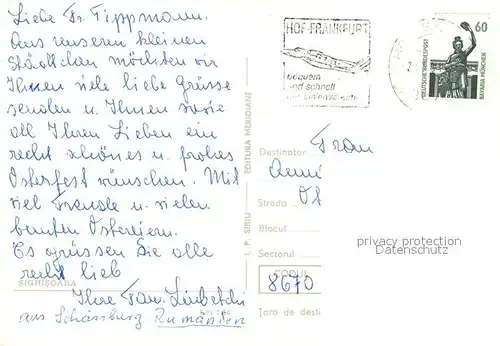 Liebe Fr. Tippmann.
Aus unserem kleinen
Städtchen möchten wir
Ihnen viele liebe Grüsse
senden u. Ihnen sowie
all Ihren Lieben ein
recht schönes u. frohes
Osterfest wünschen. Mit
viel Freude u. vielen
bunten Ostereiern.
Es grüssen Sie alle
recht lieb
SIGHIȘOARA
Ihre Fam.
aus Schässburg Rumänien
Lei 1,60
I. P. SIBIU
EDITURA MERIDIANE
HOF-FRANKFURT
bequem
und schnell
60
DEUTSCHE BUNDESPOST
BAVARIA MÜNCHEN
Destinator
Frau
Strada
Blocul
Sectorul
CODUL
8670
Țara de desti
privacy protection
Datenschutz